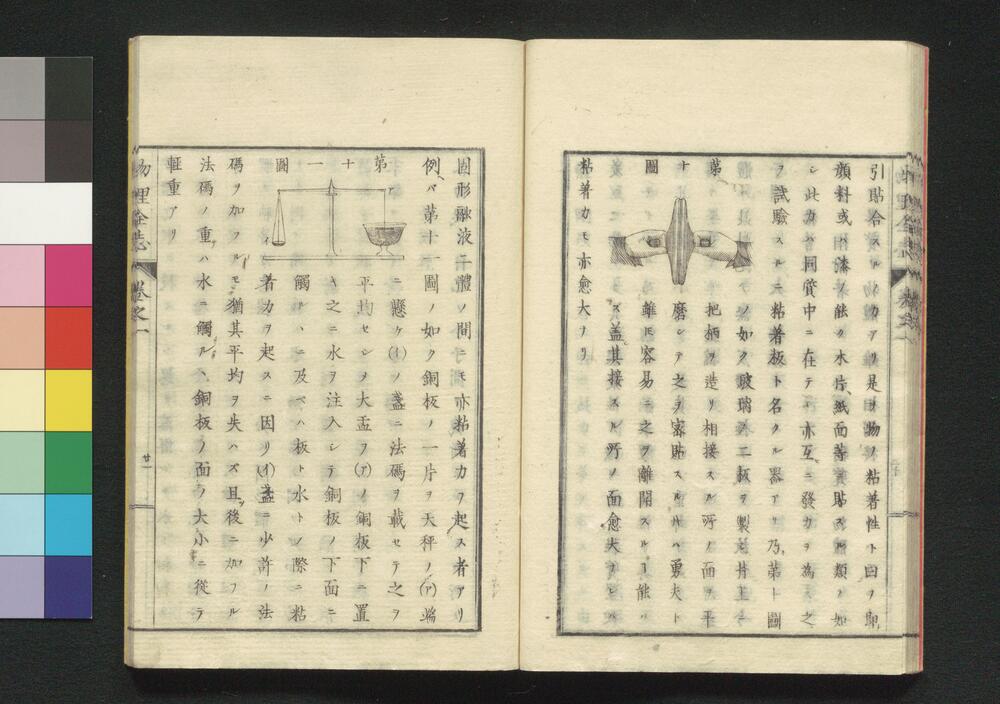 引貼合スルノ力アリ是ヲ物ノ粘着性ト曰ヲ即
顔料或ハ漆ノ能ク木片紙面等貼スル類ノ如
シ此力ハ同質中ニ在テ亦互ニ發力ヲ為ス之
ヲ試驗スルニ粘着板ト名クル器アリ乃第十圖
ノ如ク玻璃ノ二板ヲ製
第十圖
把柄ヲ造リ相接スル所ノ面ヲ平
磨シテ之ヲ密貼スルハ勇夫ト
雖𪜈容易ニ之ヲ離開スルヿ能ハ
ズ盖其接スル所ノ面愈大ナレバ
粘着力モ亦愈大ナリ
固形融液二體ノ間ニモ亦粘着力ヲ起ス者アリ
例バ第十一圖ノ如ク銅板ノ一片ヲ天秤ノ(ア)端
第十一圖
ニ懸ケ(イ)ノ盞ニ法碼ヲ載セテ之ヲ
平均セシメ大盂ヲ(ア)ノ銅板下ニ置
キ之ニ水ヲ注入シテ銅板ノ下面ニ
觸ルヽニ及ベハ板ト水トノ際ニ粘
着力ヲ起スニ因リ(イ)盞ニ少許ノ法
碼ヲ加フルモ猶其平均ヲ失ハズ且後ニ加フル
法碼ノ重ハ水ニ觸ルヽ銅板ノ面ノ大小ニ從テ
輕重アリ
物理全志
卷之一
廿一